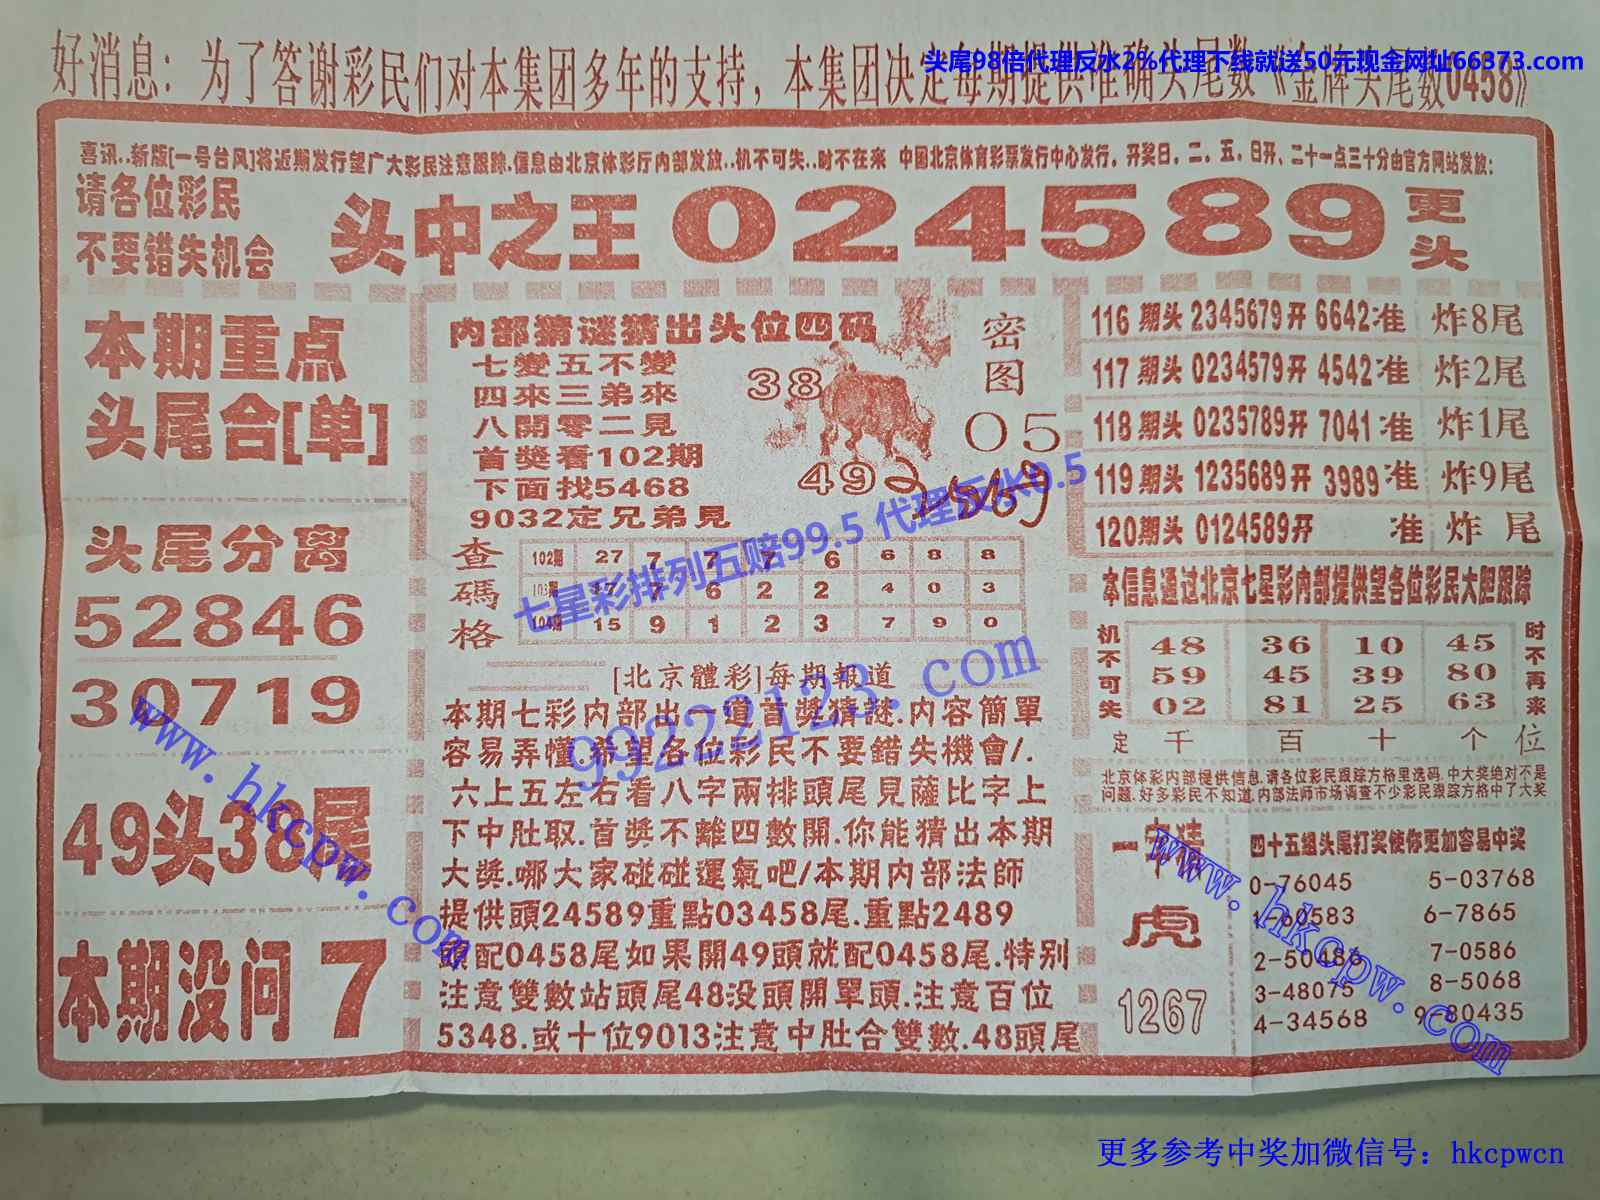 好消息：为了答谢彩民们对本集团多年的支持，本集团决定每期提供准确头尾数《金牌头尾数0458》
头尾98倍代理反水2%代理下线就送50元现金网址66373.com
喜讯..新版[一号台风]将近期发行望广大彩民注意跟踪.信息由北京体彩厅内部发放..机不可失..时不在来 中国北京体育彩票发行中心发行，开奖日，二，五，日开、二十一点三十分由官方网站发放：
请各位彩民
不要错失机会
头中之王 024589
更头
本期重点
头尾合[单]
头尾分离
52846
30719
49头38尾
本期没问 7
内部猜谜猜出头位四码
七變五不變
四來三弟來
八開零二見
首獎看102期
下面找5468
9032定兄弟見
密图
38
05
49
查碼格
102期 27 7 7 7 6 6 8 8
103期 17 7 6 2 2 4 0 3
104期 15 9 1 2 3 7 9 0
[北京體彩]每期報道
本期七彩内部出一道首獎猜謎.内容簡單
容易弄懂.希望各位彩民不要錯失機會/.
六上五左右看八字兩排頭尾見薩比字上
下中肚取.首獎不離四數開.你能猜出本期
大獎.哪大家碰碰運氣吧/本期内部法師
提供頭24589重點03458尾.重點2489
頭配0458尾如果開49頭就配0458尾.特别
注意雙數站頭尾48没頭開單頭.注意百位
5348.或十位9013注意中肚合雙數.48頭尾
116 期头 2345679开 6642准 炸8尾
117 期头 0234579开 4542准 炸2尾
118 期头 0235789开 7041准 炸1尾
119 期头 1235689开 3989准 炸9尾
120期头 0124589开 准 炸 尾
本信息通过北京七星彩内部提供望各位彩民大胆跟踪
机不可失
48 36 10 45
59 45 39 80
02 81 25 63
时不再来
定 千 百 十 个 位
北京体彩内部提供信息.请各位彩民跟踪方格里选码.中大奖绝对不是
问题.好多彩民不知道.内部法师市场调查不少彩民跟踪方格中了大奖
一字猜
虎
1267
四十五组头尾打奖使你更加容易中奖
0-76045 5-03768
1-60583 6-7865
2-50486 7-0586
3-48075 8-5068
4-34568 9-80435
七星彩排列五赔99.5 代理反水0.5
99222123.com
www.hkcpw.com
www.hkcpw.com
更多参考中奖加微信号：hkcpwcn